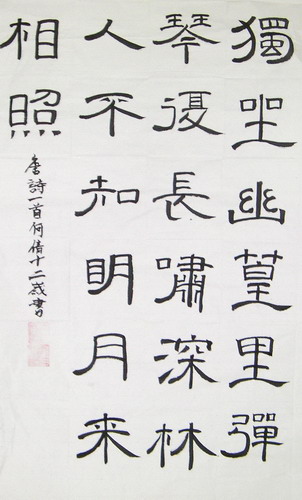 獨坐幽篁里彈
琴復長嘯深林
人不知明月来
相照
唐詩一首何倩十二歲書